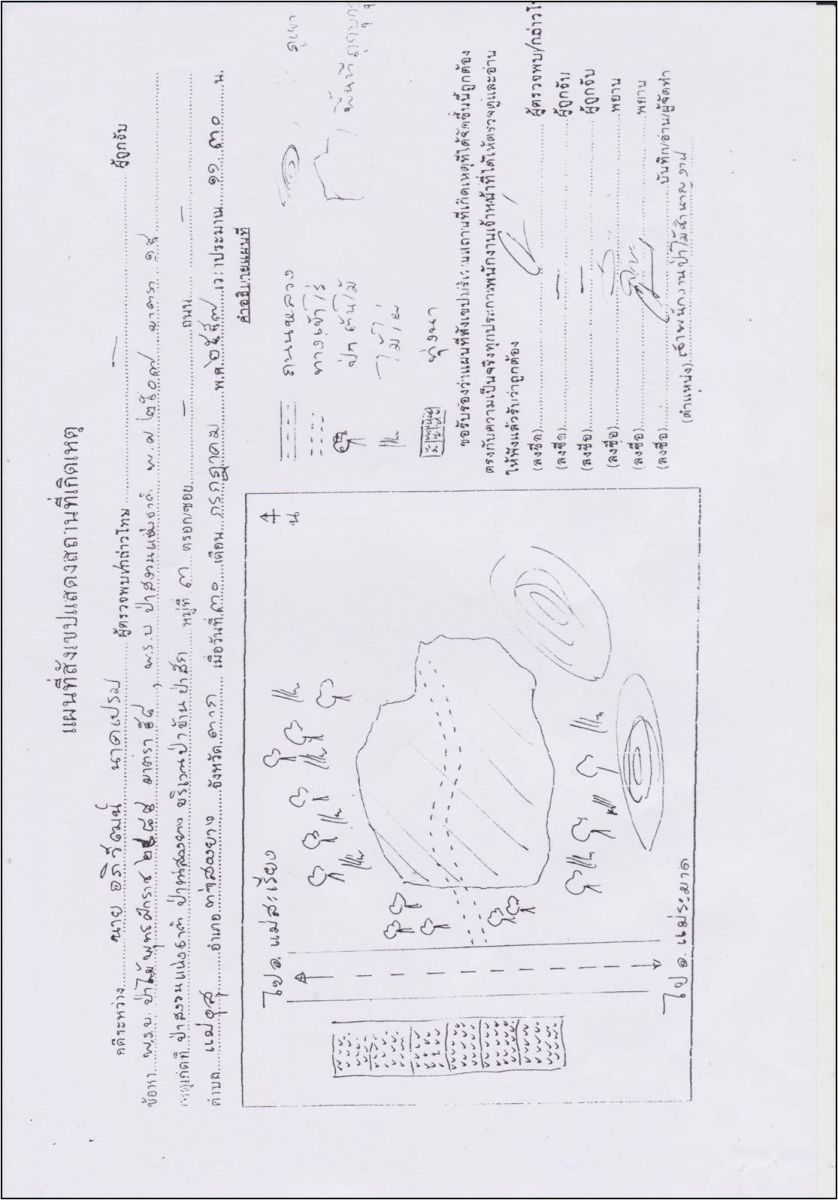 แผนที่สังเขปแสดงสถานที่เกิดเหตุ
คดีระหว่าง นาย อภิวัฒน์ นาคเปรม ผู้ตรวจพบ/กล่าวโทษ — ผู้ถูกจับ
ข้อหา พ.ร.บ. ป่าไม้ พุทธศักราช ๒๔๘๔ มาตรา ๕๔ , พ.ร.บ ป่าสงวนแห่งชาติ พ.ศ ๒๕๐๗ มาตรา ๑๔
เหตุเกิดที่ ป่าสงวนแห่งชาติ ป่าท่าสองยาง บริเวณป่าบ้าน หมู่ที่ ๓ ตรอก/ซอย — ถนน —
ตำบล แม่อุสุ อำเภอ ท่าสองยาง จังหวัด ตาก เมื่อวันที่ ๓๐ เดือน กรกฎาคม พ.ศ. ๒๕๕๗ เวลาประมาณ ๑๑.๓๐ น.
น
ไป อ. แม่สะเรียง
ไป อ. แม่ระมาด
คำอธิบายแผนที่
ถนนหลวง
ภูเขา
ทางเข้าไร่
พื้นที่
ป่า ต้นไม้
ไม้ไผ่
ทุ่งนา
ขอรับรองว่าแผนที่สังเขปบริเวณสถานที่เกิดเหตุที่ได้จัดขึ้นนี้ถูกต้อง
ตรงกับความเป็นจริงทุกประการพนักงานเจ้าหน้าที่ได้ให้ตรวจดูและอ่าน
ให้ฟังแล้วรับว่าถูกต้อง
(ลงชื่อ) ผู้ตรวจพบ/กล่าวโทษ
(ลงชื่อ) — ผู้ถูกจับ
(ลงชื่อ) — ผู้ถูกจับ
(ลงชื่อ) พยาน
(ลงชื่อ) พยาน
(ลงชื่อ) บันทึก/อ่าน/ผู้จัดทำ
(ตำแหน่ง) เจ้าพนักงานป่าไม้ชำนาญงาน